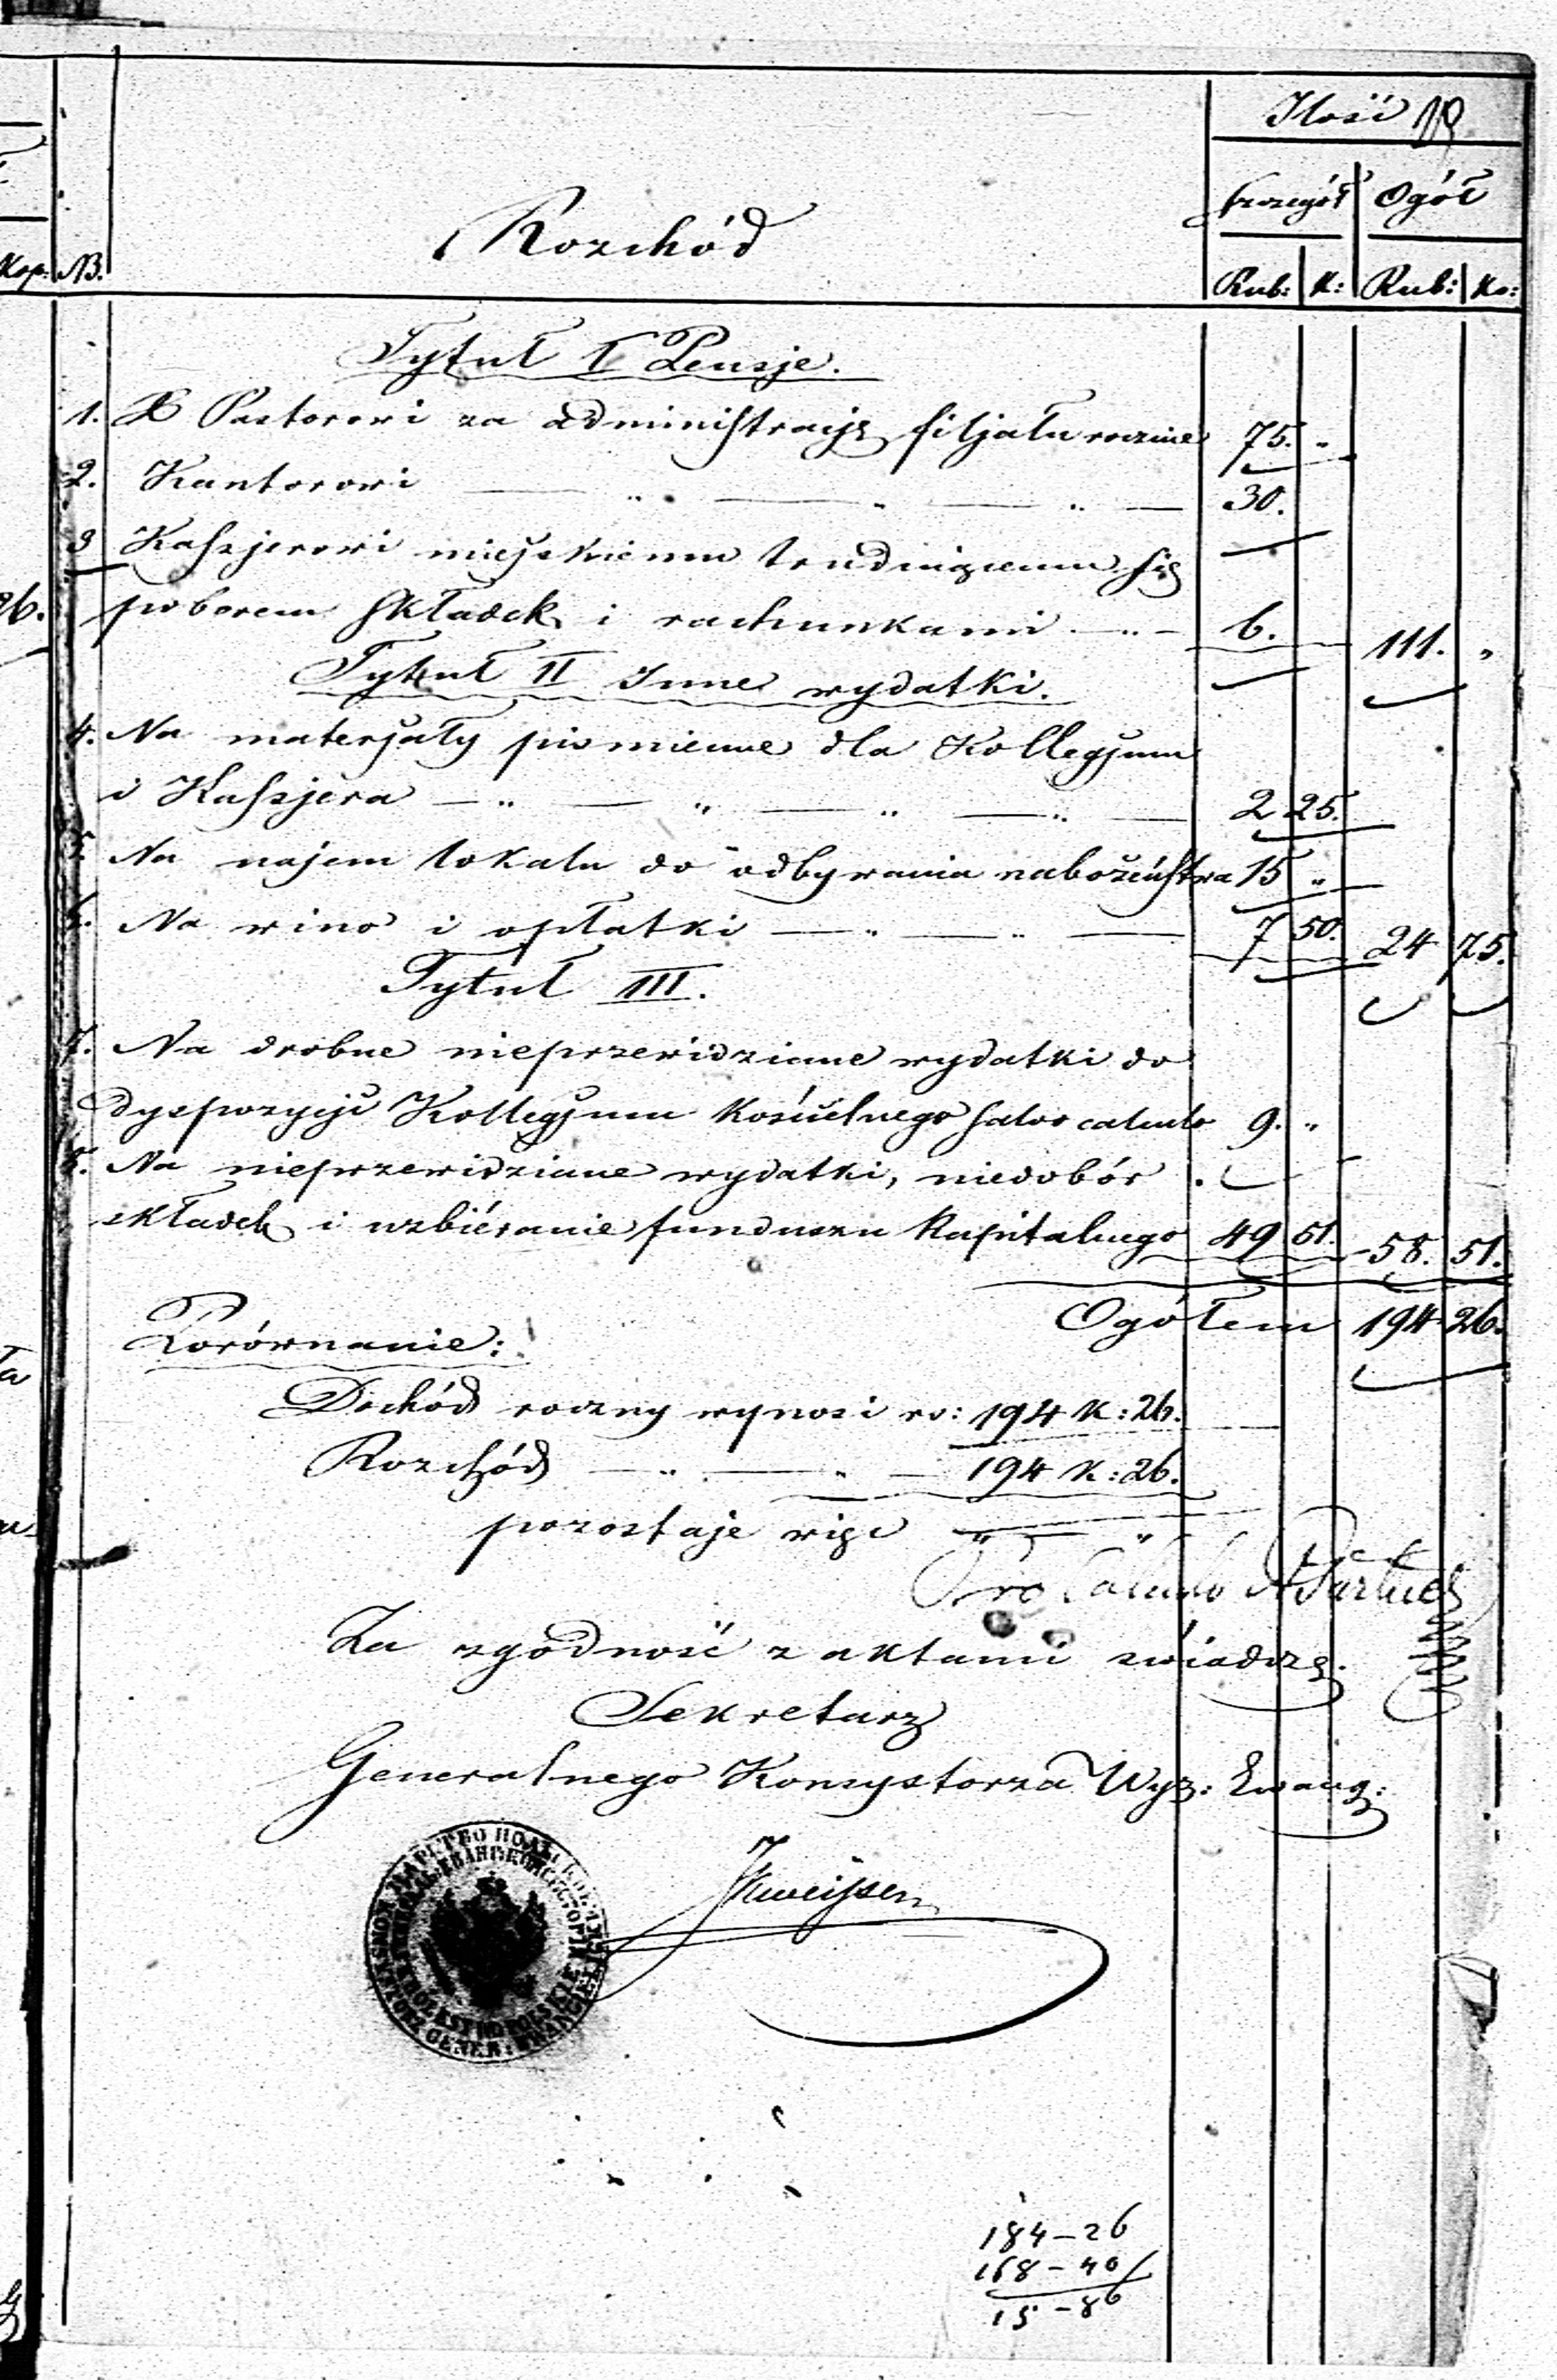 Ilość 19
szczegół Ogół
Kop. NB. Rozchód Rub: K: Rub: Ko:
Tytuł I Pensje.
1. X Pastorowi za administracją filjału rocznie 75. "
2. Kantorowi — " — " — " — 30.
3 Kaſsjerowi miejskiemu trudniącemu się
26. poborem składek i rachunkami — " — 6. 111. "
Tytuł II Inne wydatki.
4. Na materjały piśmienne dla Kollegjum
i Kaſsjera — " — " — " — " — 2 25.
5. Na najem lokalu do odbywania nabożeństwa 15 "
6. Na wino i opłatki — " — " — 7 50. 24 75.
Tytuł III.
7. Na drobne nieprzewidziane wydatki do
dyspozycji Kollegjum Kościelnego salvo calculo 9. "
8. Na nieprzewidziane wydatki, niedobór
składek i uzbiéranie funduszu Kapitalnego 49 51. 58. 51.
Ogółem 194 26.
Porównanie:
Dochód roczny wynosi rs: 194 K: 26.
Rozchód — " — " — 194 K: 26.
pozostaje więc " — "
Pro Calculo
Za zgodność z aktami świadczę.
Sekretarz
Generalnego Konsystorza Wyz: Ewang:
184 - 26
168 - 40
15 - 86